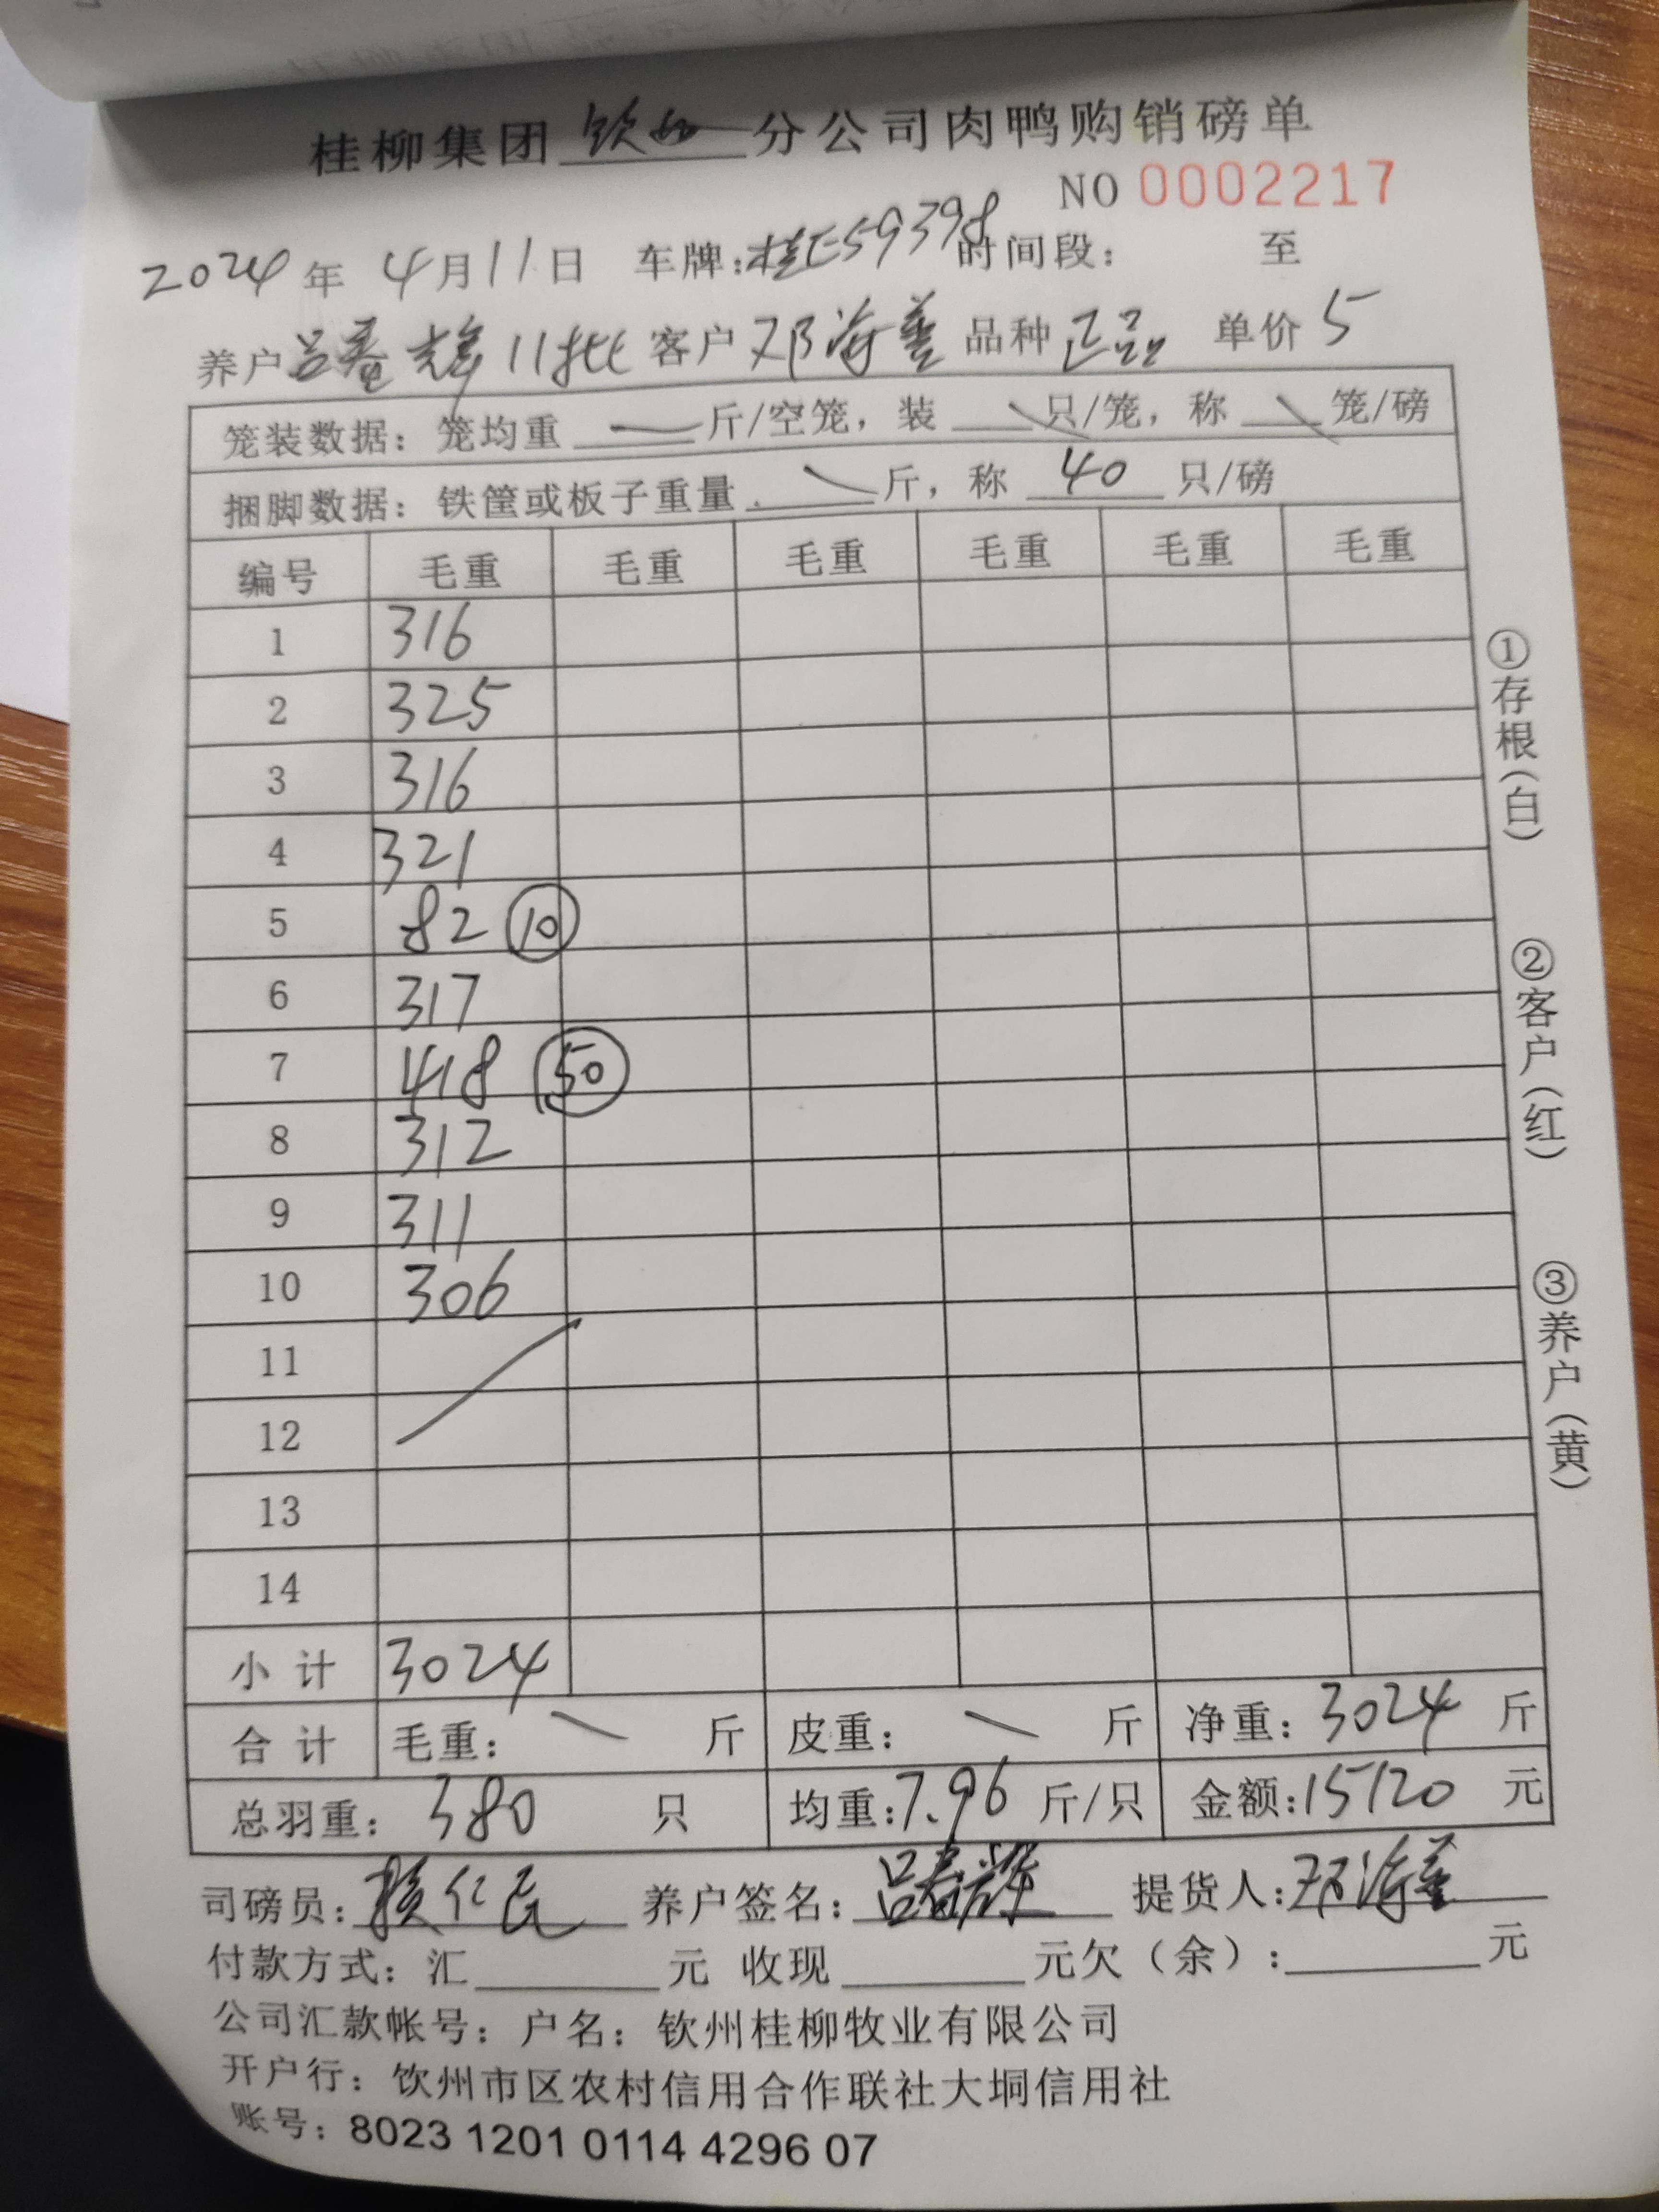 桂柳集团 钦州 分公司肉鸭购销磅单
NO 0002217
2024 年 4 月 11 日 车牌:桂E59398 时间段: 至
养户 吕春辉 11批 客户 邓海 品种 正品 单价 5
笼装数据:笼均重 — 斤/空笼,装 \ 只/笼,称 \ 笼/磅
捆脚数据:铁筐或板子重量 \ 斤,称 40 只/磅
编号 毛重 毛重 毛重 毛重 毛重 毛重
1 316
2 325
3 316
4 321
5 82 ⑩
6 317
7 418 ㊿
8 312
9 311
10 306
11
12
13
14
小 计 3024
合 计 毛重: \ 斤 皮重: \ 斤 净重: 3024 斤
总羽重: 380 只 均重:7.96 斤/只 金额:15120 元
司磅员: 仁 养户签名: 吕春辉 提货人:邓海
付款方式:汇 元 收现 元欠(余): 元
公司汇款帐号:户名:钦州桂柳牧业有限公司
开户行:钦州市区农村信用合作联社大垌信用社
账号:8023 1201 0114 4296 07
①存根(白)
②客户(红)
③养户(黄)